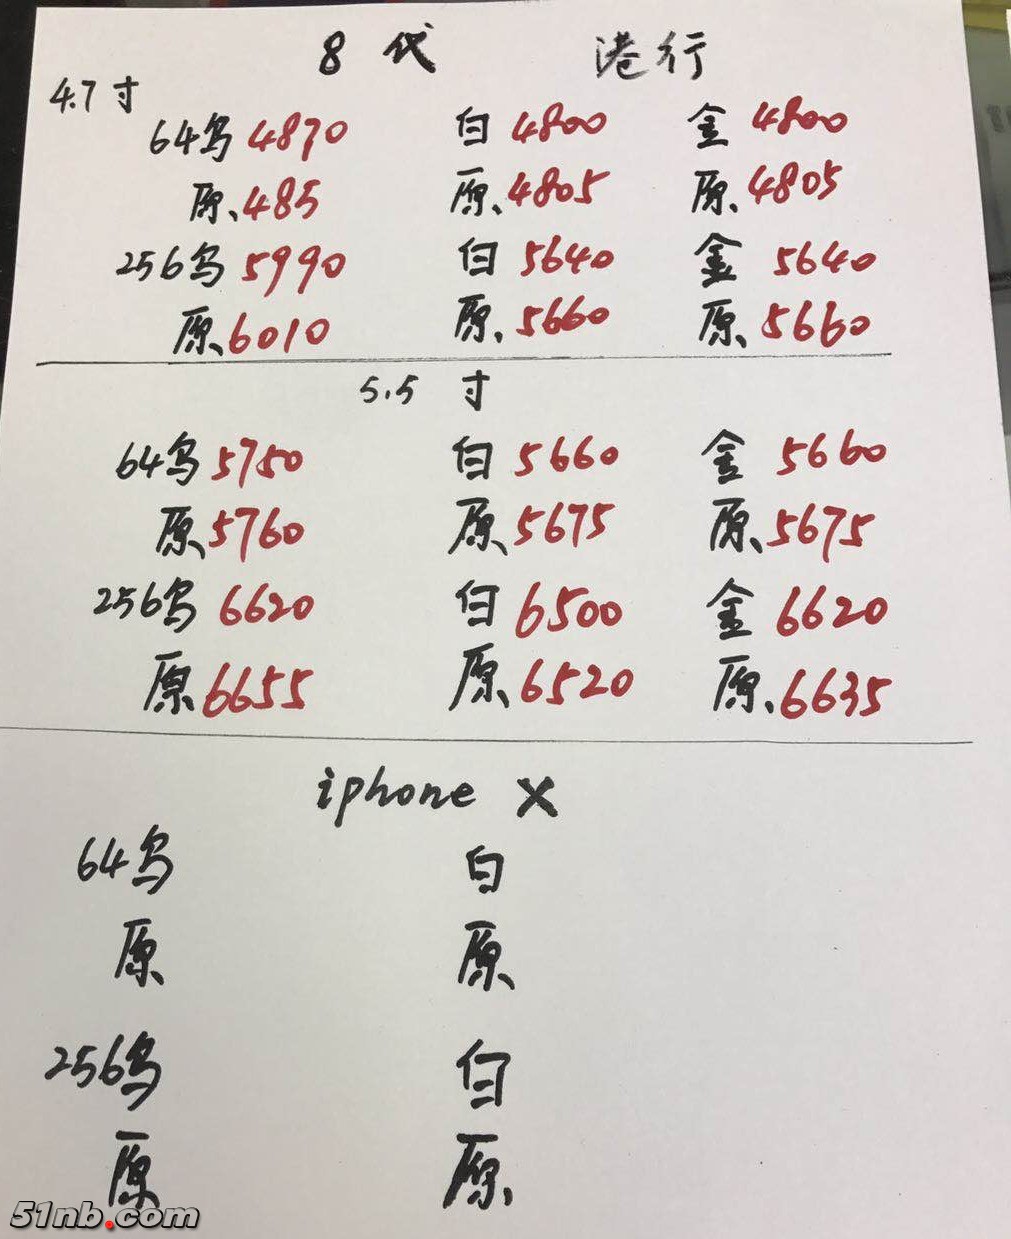 8 代 港行
4.7寸
64乌 4870 白 4800 金 4800
原、485 原、4805 原、4805
256乌 5990 白 5640 金 5640
原、6010 原、5660 原、5660
5.5 寸
64乌 5750 白 5660 金 5660
原、5760 原 5675 原、5675
256乌 6620 白 6500 金 6620
原 6655 原、6520 原、6635
iphone X
64乌 白
原 原
256乌 白
原 原
51nb.com